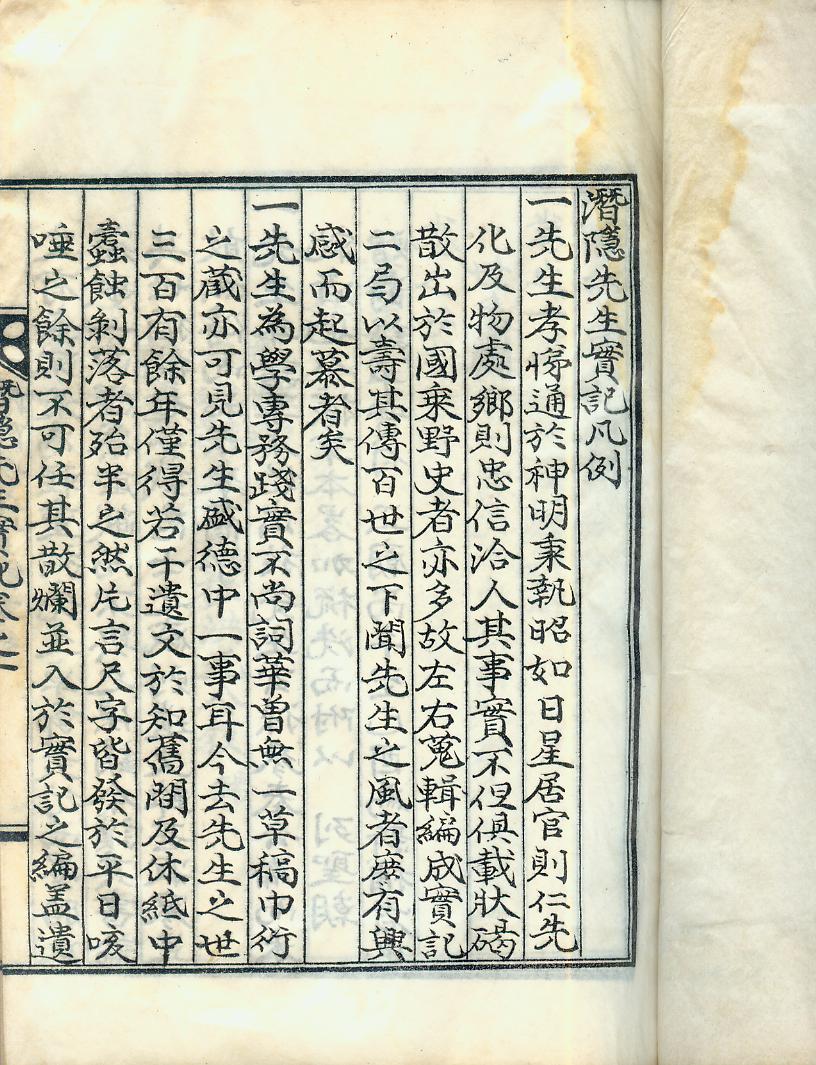 潛隱先生實記凡例
一先生孝悌通於神明秉執昭如日星居官則仁先
化及物處鄉則忠信洽人其事實不但俱載狀碣
散出於國乘野史者亦多故左右蒐輯編成實記
二局以壽其傳百世之下聞先生之風者庶有興
感而起慕者矣
一先生為學專務踐實不尚詞華曾無一草稿巾衍
之藏亦可見先生盛德中一事耳今去先生之世
三百有餘年僅得若干遺文於知舊間及休紙中
蠹蝕剝落者殆半之然片言尺字皆發於平日咳
唾之餘則不可任其散爛並入於實記之編盖遺
潛隱先生實記卷之一